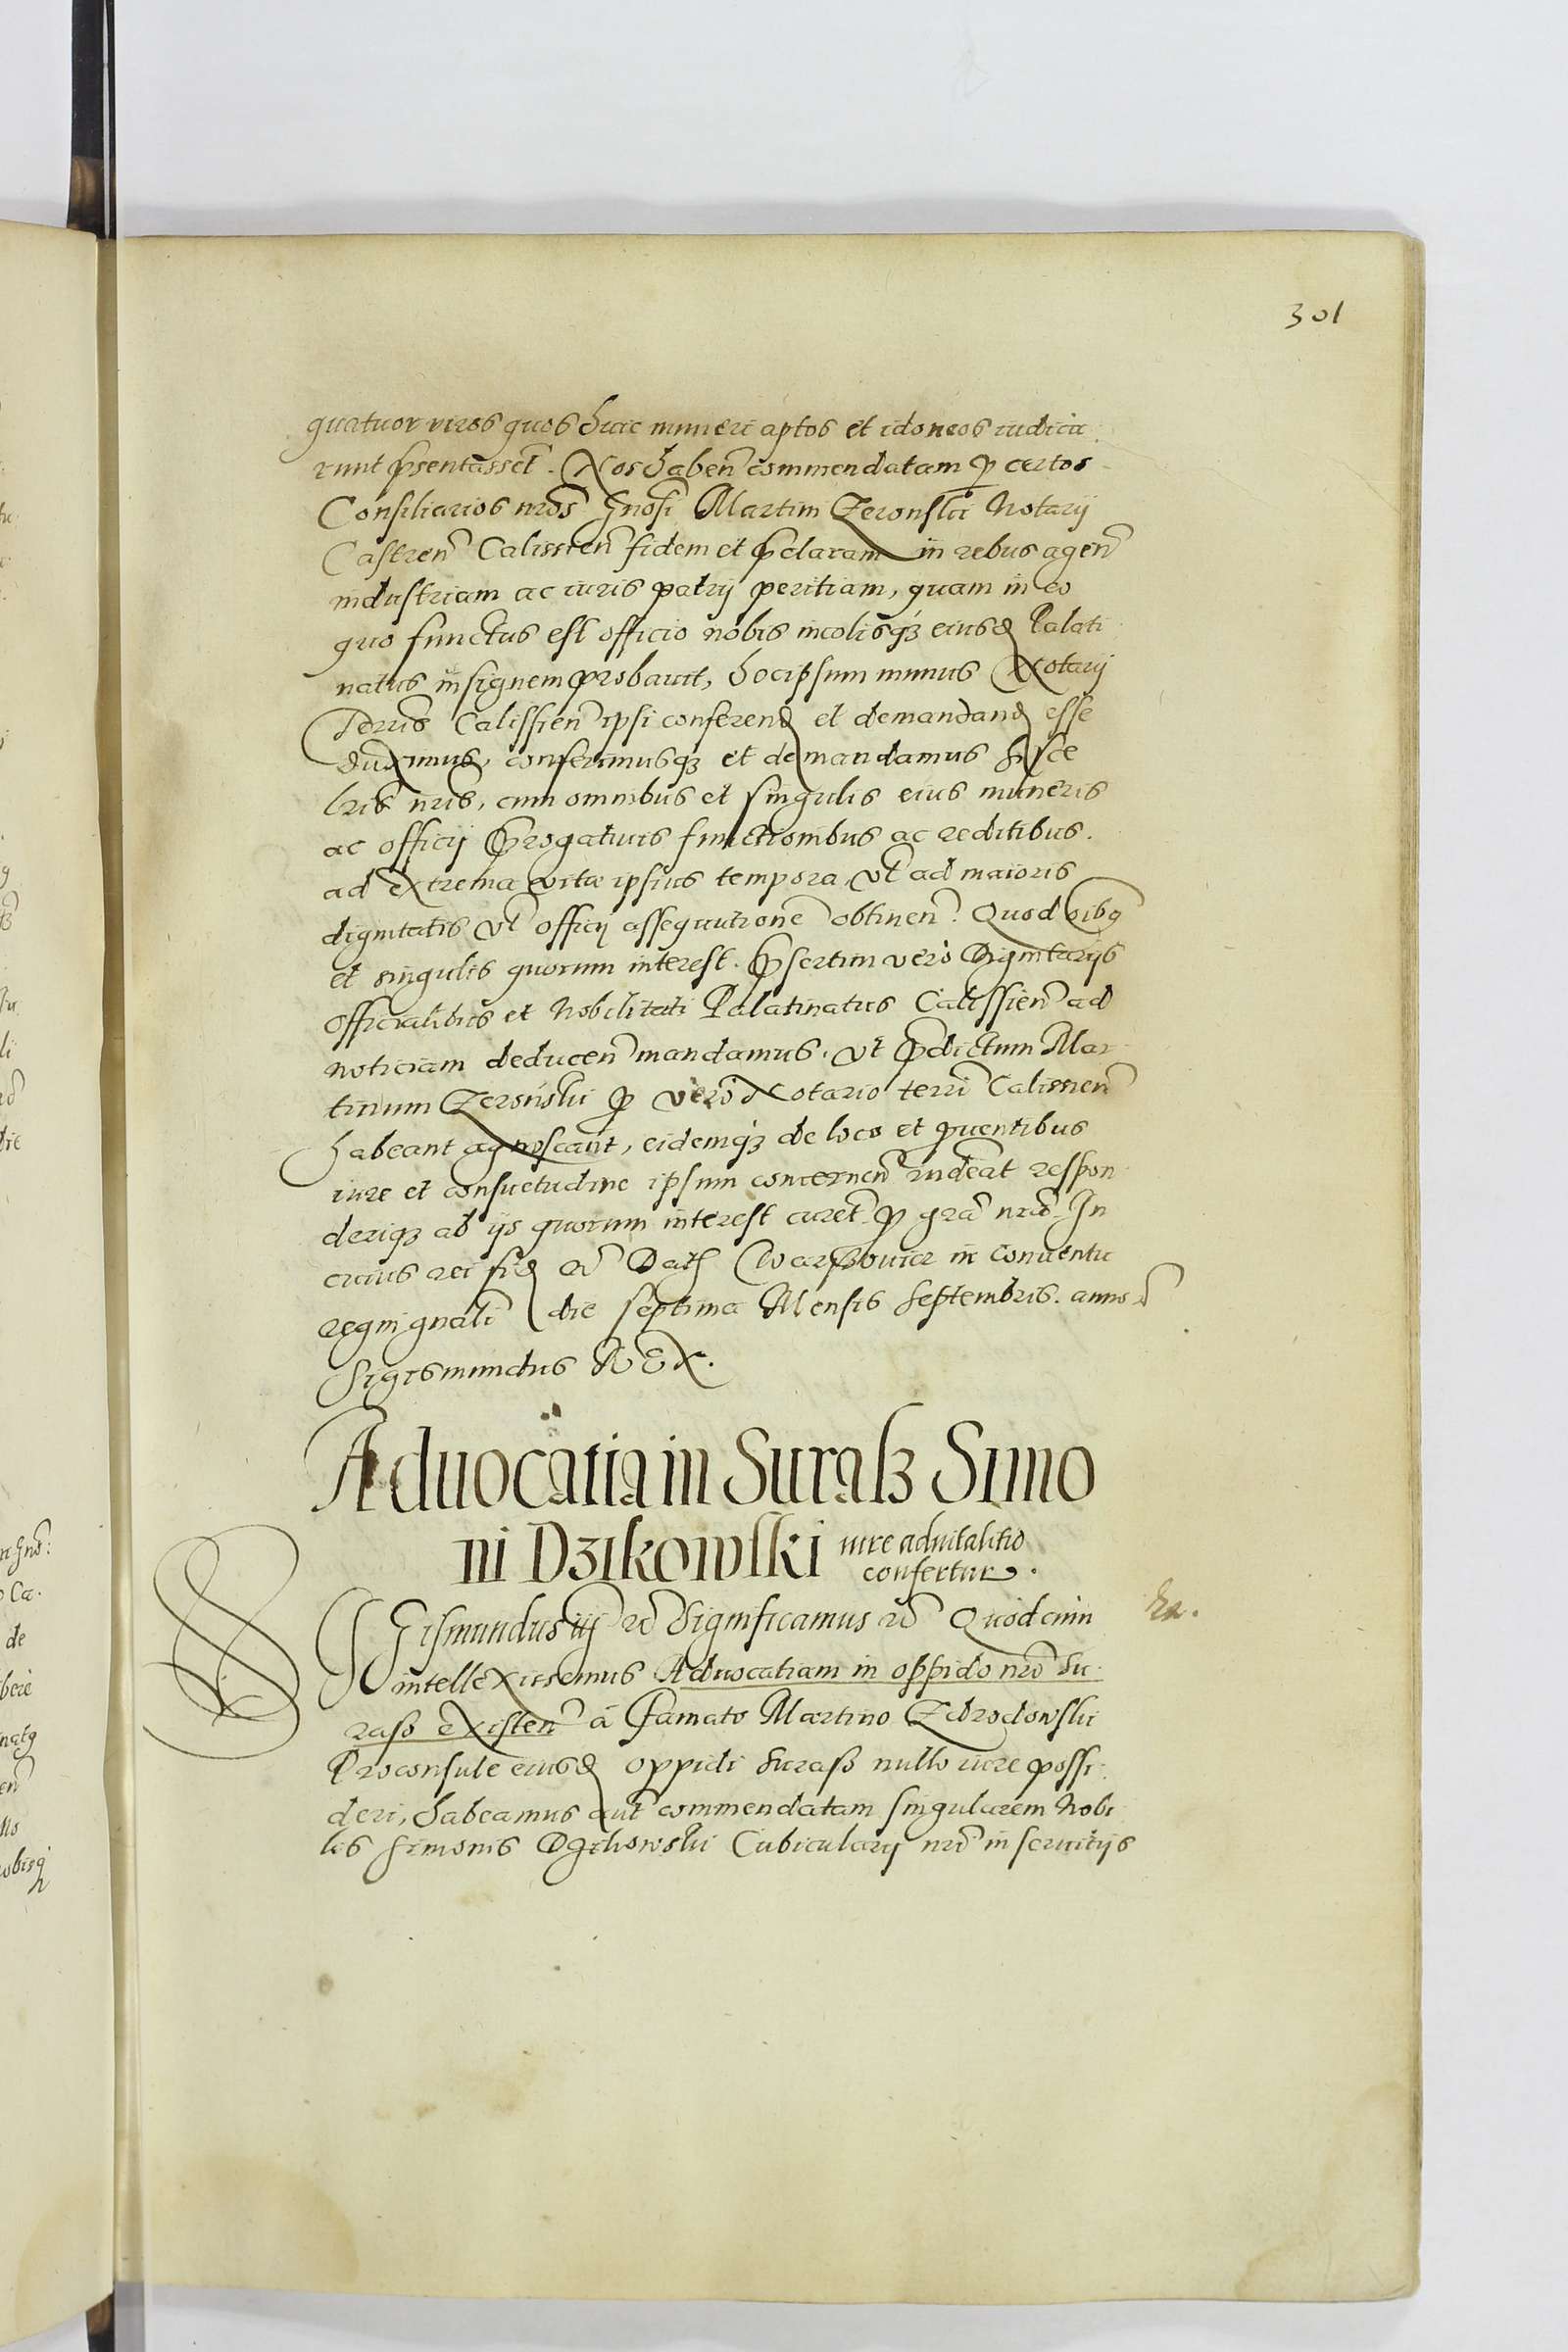 301
quatuor viros quos huic muneri aptos et idoneos iudica
runt p̄sentasset. Nos haben̄ commendatam p̱ certos
Consiliarios nr̄os Gn̄osi Martini Zeronski Notarij
Castren̄ Calissien̄ fidem et p̄claram in rebus agen̄
industriam ac iuris patrij peritiam, quam in eo
quo functus est officio nobis incolisq́ꝫ eiusd̄ Palati
natus insignem probavit, hoc ipsum munus Notarij
Terris̄ Calissien̄ ipsi conferend̄ et demandand̄ esse
duximus, conferimusqꝫ et demandamus hisce
lr̄is nr̄is, cum omnibus et singulis eius muneris
ac officij p̄rogativis functionibus ac reditibus.
ad extrema vitæ ipsius tempora, vl̄ ad maioris
dignitatis vl̄ officij assequutionē obtinen̄. Quod oībꝯ
et singulis quorum interest. p̄sertim verò Dignitarijs
officialibus et Nobilitati Palatinatus Calissien̄ ad
noticiam deducen̄ mandamus. vt p̄dictum Mar
tinum Zeroński p̱ vero Notario terrī Calissien̄
habeant agnoscant, eidemq́ꝫ de loco et p̱uentibus
iure et consuetudine ipsum concernen̄ rn̄deāt respon
deriqꝫ ab ijs quorum interest curēt p̱ grā nrā. In
cuius rei fid̄ etc̄ Dat̄ Warssouiæ in Conuentu
regni gn̄ali die septima Mensis Septembris. anno etc̄
Sigismundus REX.
Aduocatia in Surasz Simo
ni Dzikowski iure aduitalitio
confertur.
SIGismundus iij etc̄ Significamus etc̄ Quod cum
intellexissemus Aduocatiam in oppido nr̄o Su
rasz existen̄ à Famato Martino Zdrodowski
Proconsule eiusd̄ oppidi Surasz nullo iure possi
deri, habeamus aūt commendatam singularem Nobi
lis Simonis Dzikowski Cubicularij nr̄i in seruitijs